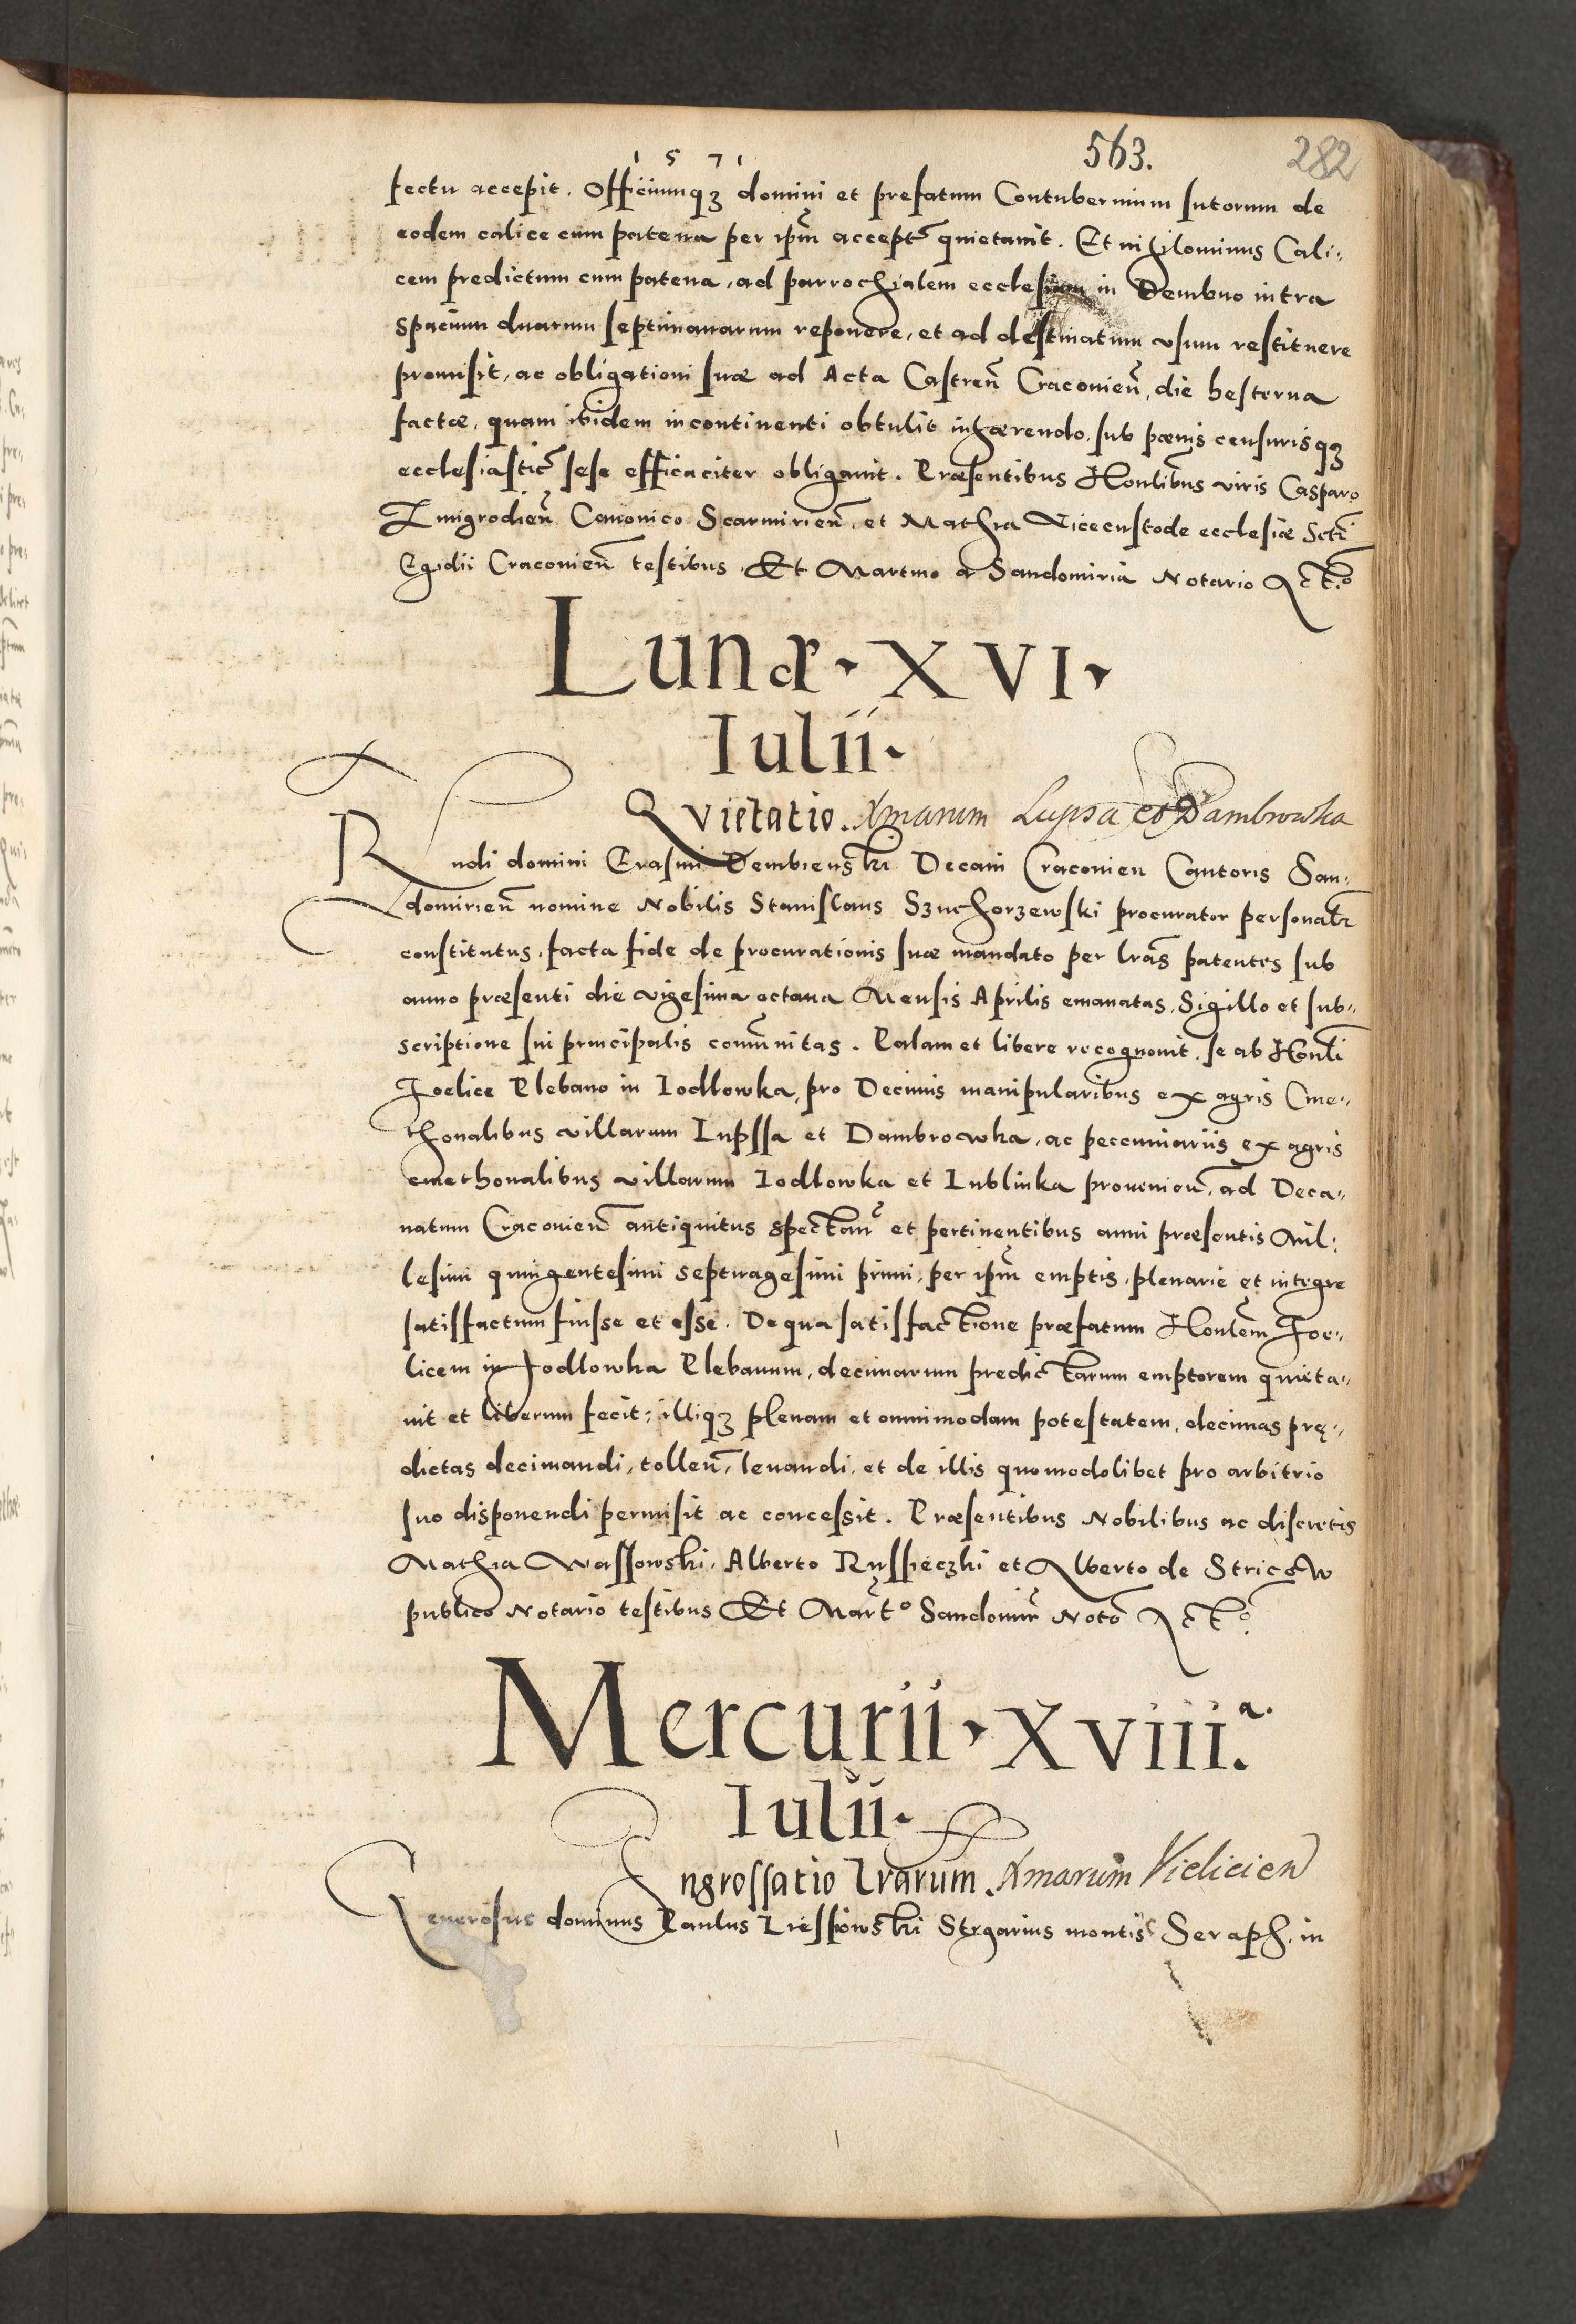 1571
563.
282
fectu accepit. Officiumqꝫ domini et prefatum Contubernium sutorum de
eodem calice cum patena per ipm̄ accept̄ quietauit. Et nihilominus Cali:
cem predictum cum patena, ad parrochialem ecclesiam in Dembno intra
spacium duarum septimanarum reponere, et ad destinatum vsum restituere
promisit, ac obligationi suæ ad Acta Castren̄ Cracovien̄, die hesterna
factæ, quam ibidem incontinenti obtulit inhærendo, sub pœnis censurisqꝫ
ecclesiastic̄ sese efficaciter obligauit. Præsentibus Honlibus viris Casparo
Zmigrodien̄ Canonico Scarmirien̄, et Mathia Vicecustode ecclesiæ Scti
Egidii Craconien̄ testibus. Et Martino a Sandomiria Notario
Lunæ · XVI ·
Iulii ·
Quietatio. Xmarum Lupsa et Dambrowka
Rndi domini Erasmi Dembienski Decani Craconien Cantoris San:
domirien̄ nomine Nobilis Stanislaus Szuchorzewski procurator personalr̄
constitutus, facta fide de procurationis suæ mandato per lrās patentes sub
anno præsenti die vigesima octaua Mensis Aprilis emanatas, Sigillo et sub:
scriptione sui principalis com̄unitas. Palam et libere recognouit, se ab Honli
Foelice Plebano in Iodlowka, pro Decimis manipularibus ex agris Cme:
thonalibus villarum Lupssa et Dambrowka, ac pecuniariis ex agris
cmethonalibus villarum Iodlowka et Lublinka prouenien̄, ad Deca:
natum Craconien̄ antiquitus spectan̄ et pertinentibus anni præsentis Mil:
lesimi quingentesimi septuagesimi primi, per ipm̄ emptis, plenarie et integre
satisfactum fuisse et esse. De qua satisfactione præfatum Honlem Foe:
licem in Iodlowka Plebanum, decimarum predictarum emptorem quieta:
uit et liberum fecit, illiqꝫ plenam et omnimodam potestatem, decimas prę:
dictas decimandi, tollen̄, leuandi, et de illis quomodolibet pro arbitrio
suo disponendi permisit ac concessit. Præsentibus Nobilibus ac discretis
Mathia Wassowski, Alberto Russieczki et Alberto de Stricow
publico Notario testibus Et Mart̄o Sandomir̄ Noto
Mercurii · XVIII.a
Iulii ·
Ingrossatio lrarum. Xmarum Vielicien
Generosus dominus Paulus Liessiowski Stygarius montis Seraph. in